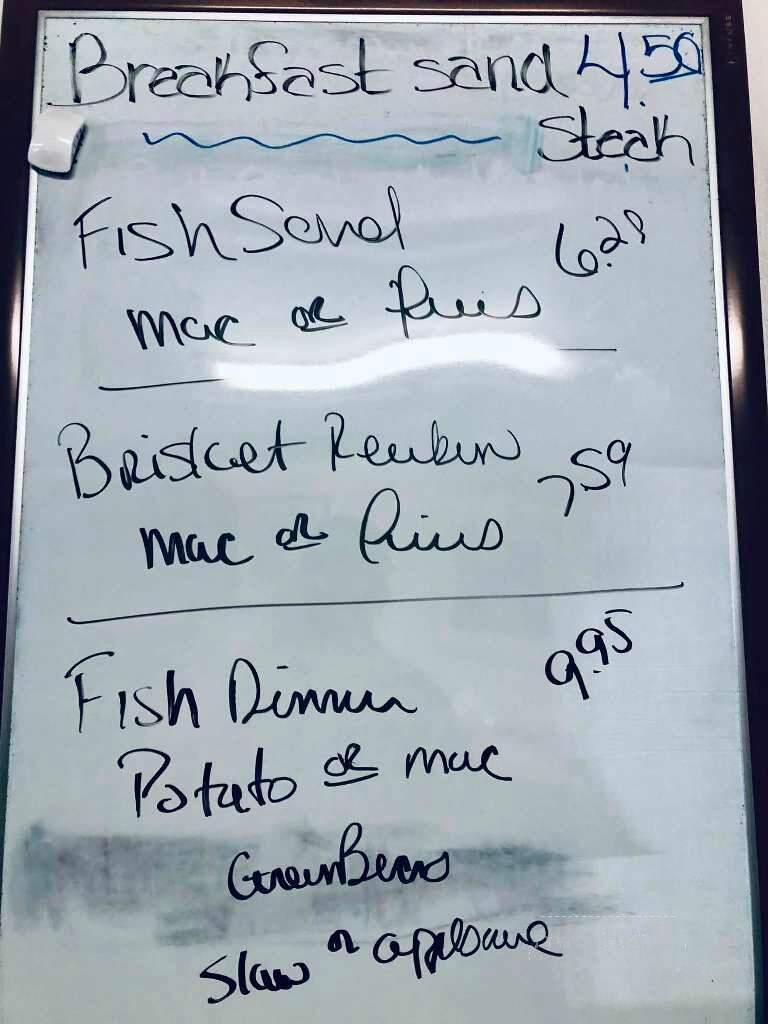 Breakfast sand 4.50
Steak
Fish Sand 6.29
mac or fries
Brisket Reuben 7.59
mac or fries
Fish Dinner 9.95
Potato or mac
Green Beans
Slaw or applsauce